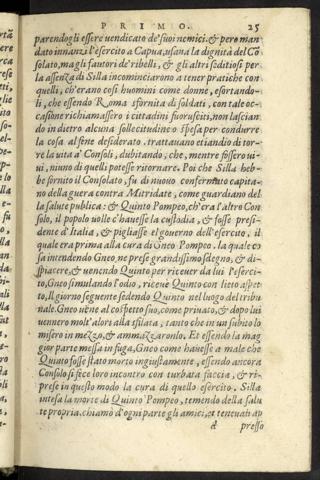 PRIMO. 25
parendogli essere uendicato de' suoi nemici. & però man
dato innanzi l'esercito a Capua, usana la dignità del Co
solato, ma gli fautori de' ribelli, & gli altri seditiosi per
la assenza di Silla incominciarono a tener pratiche con
quelli, ch'erano cosi huomini come donne, esortando-
li, che essendo Roma sfornita di soldati, con tale oc-
casione richiamassero i cittadini fuorusciti, non lascian
do in dietro alcuna sollecitudine o spesa per condurre
la cosa al fine desiderato. trattauano etiandio di tor-
re la uita a' Consoli, dubitando, che, mentre fossero ui-
ui, niuno di quelli potesse ritornare. Poi che Silla heb-
be fornito il Consolato, fu di nuouo confermato capita-
no della guerra contra Mitridate, come guardiano del
la salute publica: & Quinto Pompeo, ch'era l'altro Con
solo, il popolo uolle c'hauesse la custodia, & fosse presi-
dente d'Italia, & pigliasse el gouerno dell'esercito, il
quale era prima alla cura di Gneo Pompeo. la quale co
sa intendendo Gneo, ne prese grandissimo sdegno, & di-
spiacere, & uenendo Quinto per riceuer da lui l'eserci-
to, Gneo simulando l'odio, riceuè Quinto con lieto aspet
to, Il giorno seguente sedendo Quinto nel luogo del tribu
nale, Gneo uēne al cospetto suo, come priuato, & dopo lui
uennero molt'altri alla sfilata, tanto che in un subito lo
misero in mezzo, & ammazzaronlo. Et essendo la mag
gior parte messa in fuga, Gneo come hauesse a male che
Quinto fosse stato morto ingiustamente, essendo ancora
Consolo si fece loro incontro con turbata faccia, & ri-
prese in questo modo la cura di quello esercito. Silla
intesa la morte di Quinto Pompeo, temendo della salu
te propria, chiamò d'ogni parte gli amici, et teneuali ap
d presso